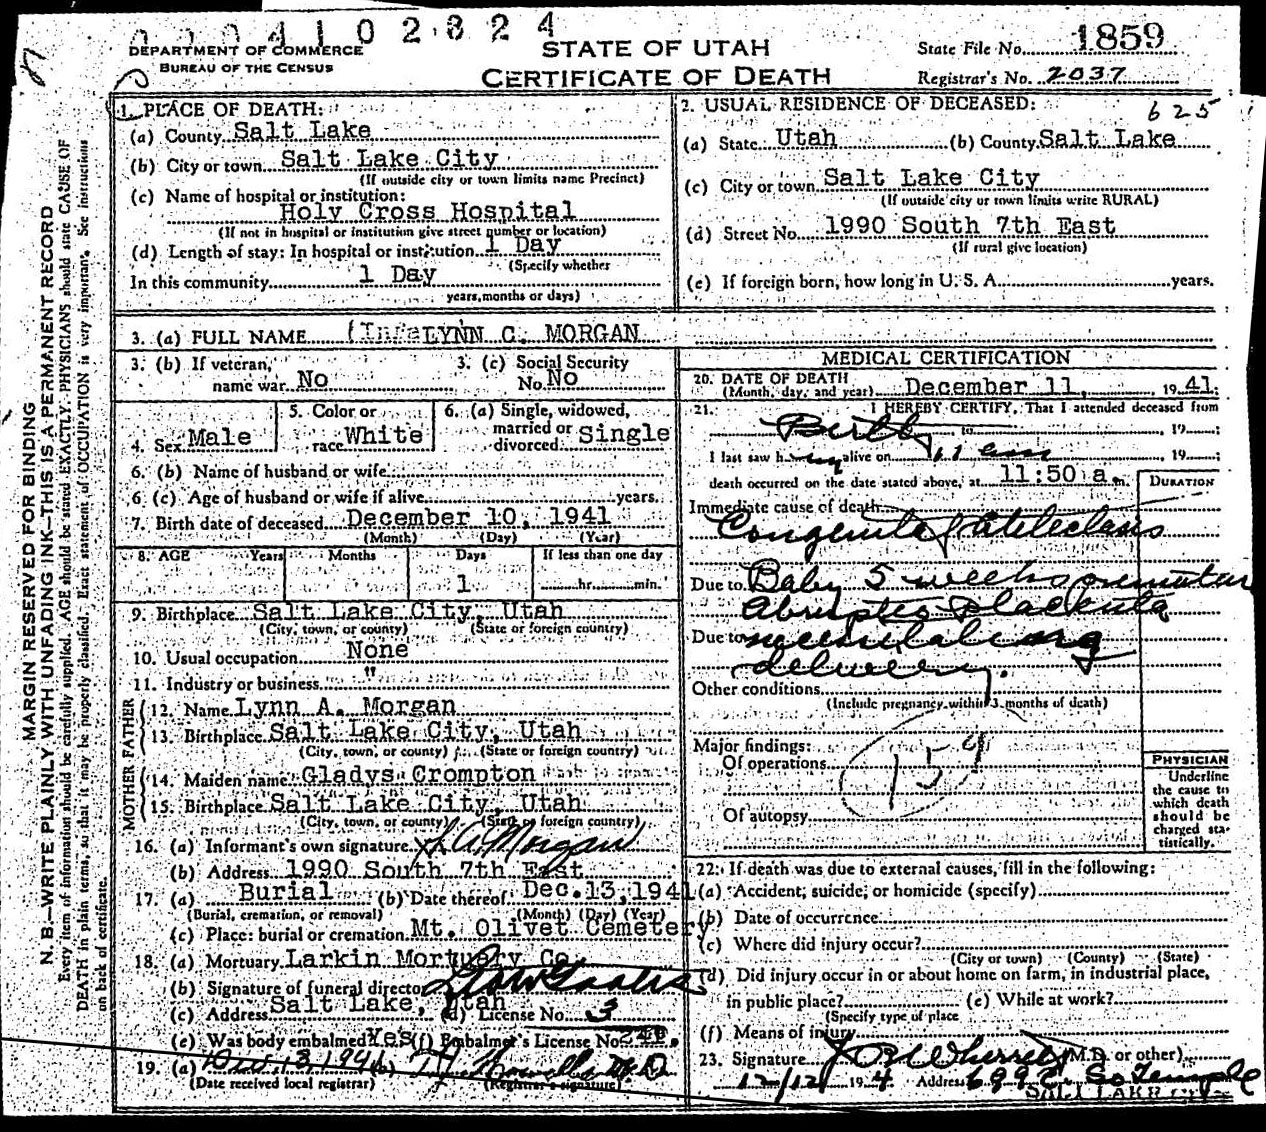 0004102824
DEPARTMENT OF COMMERCE
BUREAU OF THE CENSUS
STATE OF UTAH
CERTIFICATE OF DEATH
State File No. 1859
Registrar's No. 2037
MARGIN RESERVED FOR BINDING
N. B.—WRITE PLAINLY WITH UNFADING INK—THIS IS A PERMANENT RECORD
Every item of information should be carefully supplied. AGE should be stated EXACTLY. PHYSICIANS should state CAUSE OF
DEATH in plain terms, so that it may be properly classified. Exact statement of OCCUPATION is very important. See instructions
on back of certificate.
1. PLACE OF DEATH:
(a) County Salt Lake
(b) City or town Salt Lake City
(If outside city or town limits name Precinct)
(c) Name of hospital or institution:
Holy Cross Hospital
(If not in hospital or institution give street number or location)
(d) Length of stay: In hospital or institution 1 Day
(Specify whether
In this community 1 Day
years, months or days)
2. USUAL RESIDENCE OF DECEASED:
625
(a) State Utah (b) County Salt Lake
(c) City or town Salt Lake City
(If outside city or town limits write RURAL)
(d) Street No. 1990 South 7th East
(If rural give location)
(e) If foreign born, how long in U. S. A. years.
3. (a) FULL NAME LYNN C. MORGAN
3. (b) If veteran, name war No
3. (c) Social Security No. No
4. Sex Male
5. Color or race White
6. (a) Single, widowed, married or divorced Single
6. (b) Name of husband or wife
6. (c) Age of husband or wife if alive years.
7. Birth date of deceased December 10, 1941
(Month) (Day) (Year)
8. AGE Years Months Days If less than one day
1 hr. min.
9. Birthplace Salt Lake City, Utah
(City, town, or county) (State or foreign country)
10. Usual occupation None
11. Industry or business "
FATHER
12. Name Lynn A. Morgan
13. Birthplace Salt Lake City, Utah
(City, town, or county) (State or foreign country)
MOTHER
14. Maiden name Gladys Crompton
15. Birthplace Salt Lake City, Utah
(City, town, or county) (State or foreign country)
16. (a) Informant's own signature L A Morgan
(b) Address 1990 South 7th East
17. (a) Burial (b) Date thereof Dec. 13, 1941
(Burial, cremation, or removal) (Month) (Day) (Year)
(c) Place: burial or cremation Mt. Olivet Cemetery
18. (a) Mortuary Larkin Mortuary Co.
(b) Signature of funeral director
(c) Address Salt Lake, Utah (d) License No. 3
(e) Was body embalmed Yes (f) Embalmer's License No. 240.
19. (a) Dec. 13 1941 (b) M.D.
(Date received local registrar) (Registrar's signature)
MEDICAL CERTIFICATION
20. DATE OF DEATH
(Month, day, and year) December 11, 1941.
21. I HEREBY CERTIFY, That I attended deceased from
Birth, to , 19 ;
I last saw h alive on 11 am , 19 ;
death occurred on the date stated above, at 11:50 a. m.
DURATION
Immediate cause of death
Congenital atelectasis
Due to Baby 5 weeks premature
Abruptio placenta
Due to necessitating
delivery.
Other conditions
(Include pregnancy within 3 months of death)
Major findings:
Of operations
159
Of autopsy
PHYSICIAN
Underline
the cause to
which death
should be
charged sta-
tistically.
22. If death was due to external causes, fill in the following:
(a) Accident, suicide, or homicide (specify)
(b) Date of occurrence
(c) Where did injury occur?
(City or town) (County) (State)
(d) Did injury occur in or about home on farm, in industrial place,
in public place? (e) While at work?
(Specify type of place
(f) Means of injury
23. Signature (M.D. or other)
12/12 194 Address 699 E. So Temple
SALT LAKE CITY